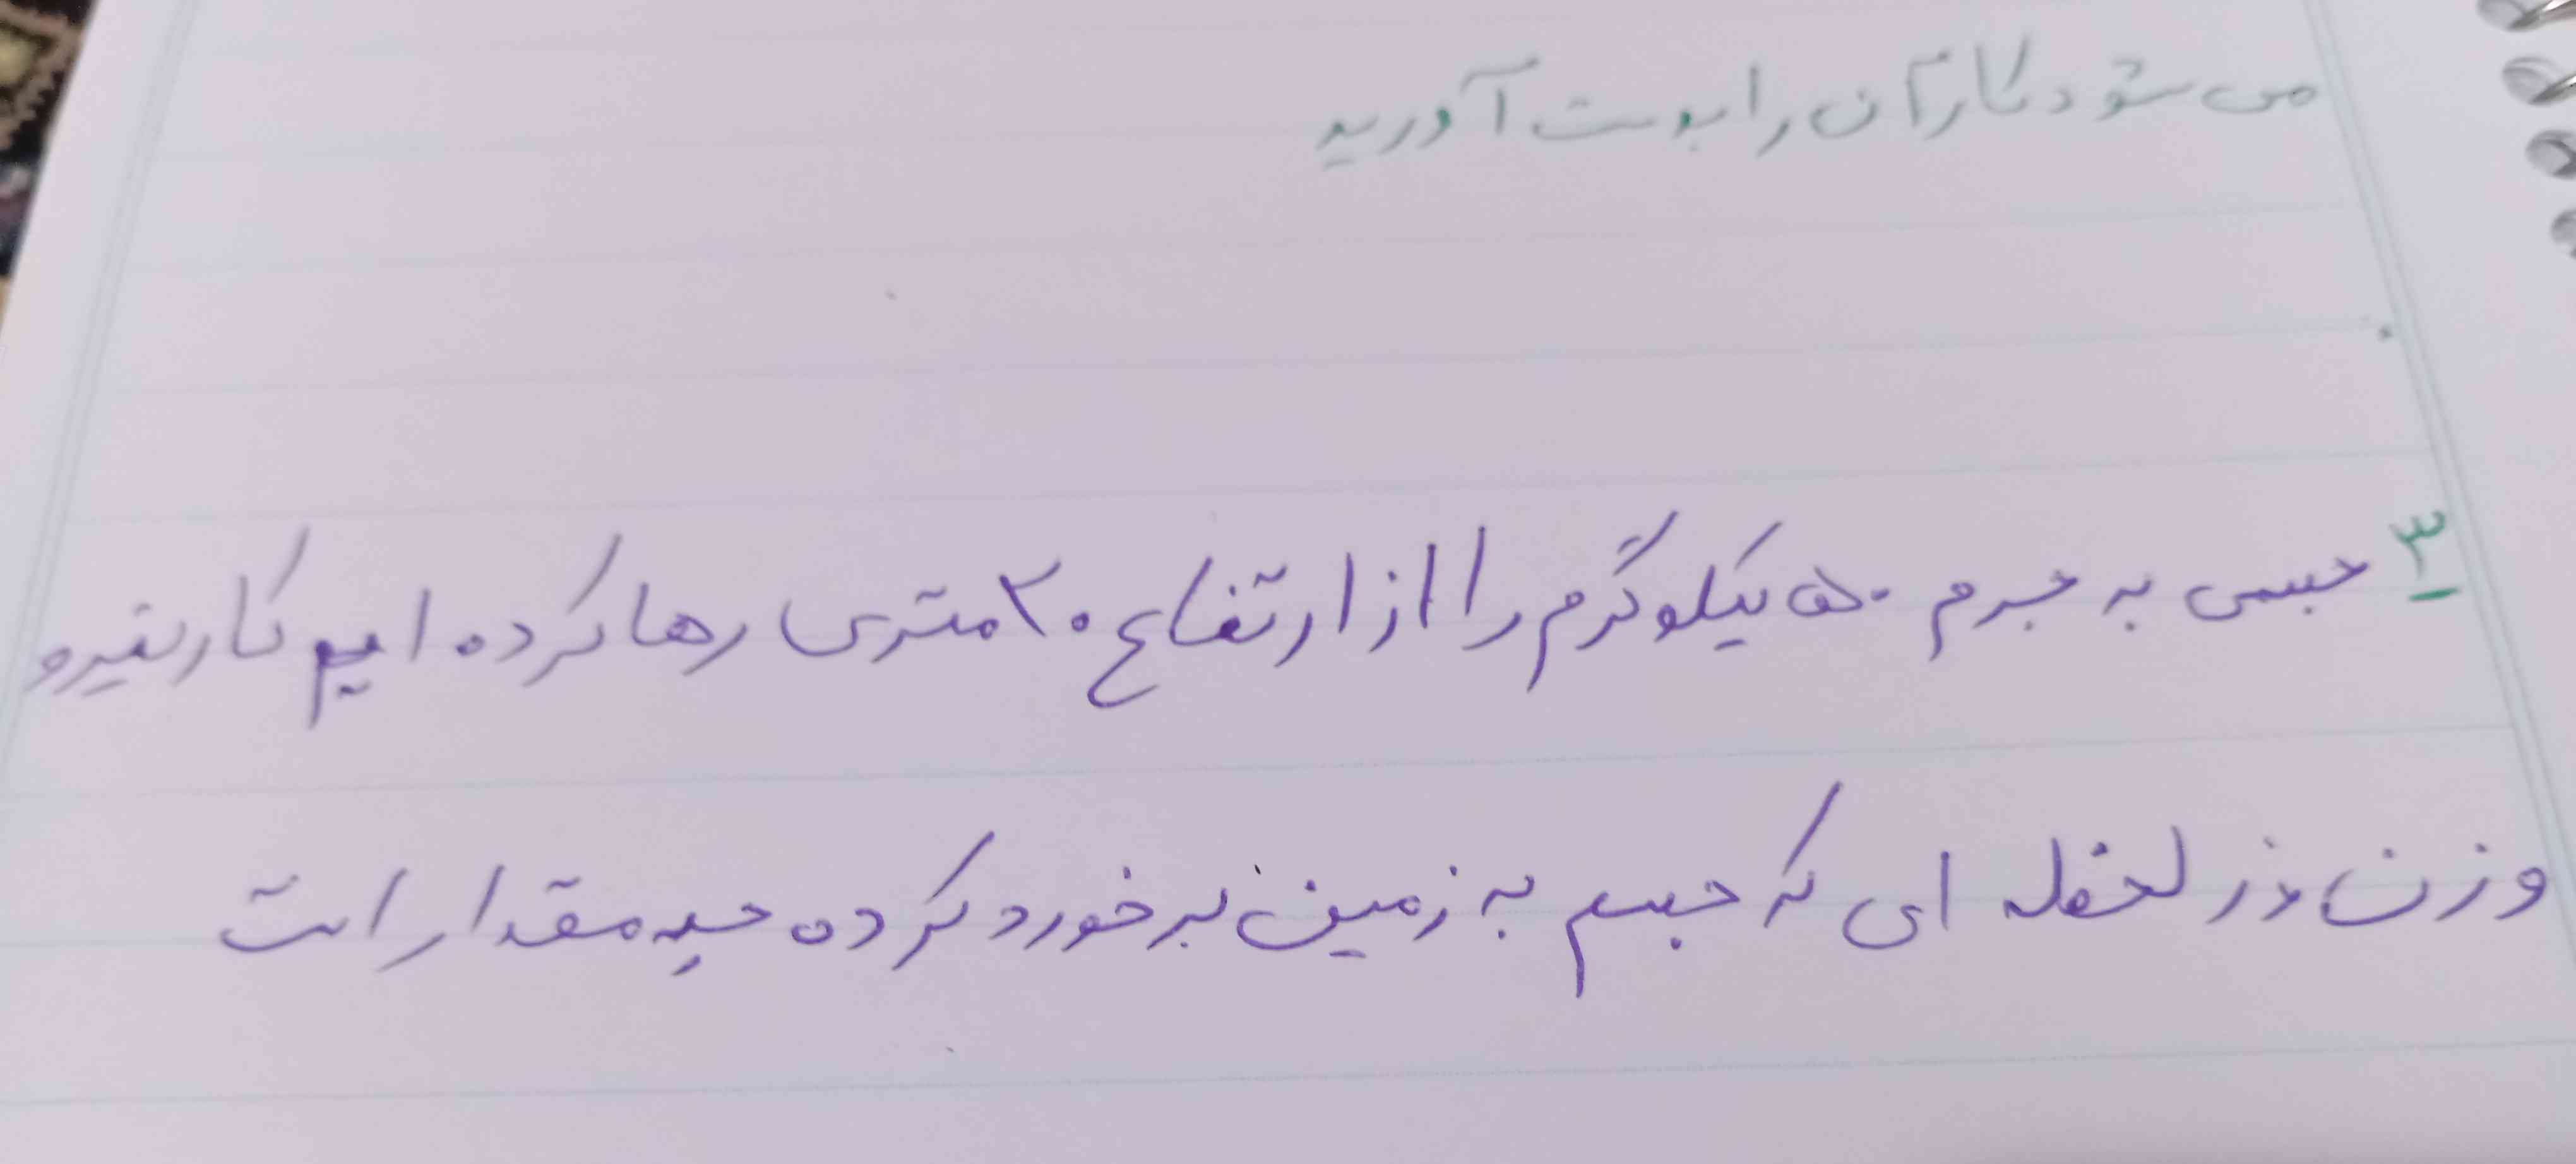 می شود کار آن را بدست آورید
۳ جسمی به جرم ۵۰ کیلوگرم را از ارتفاع ۲۰ متری رها کرده ایم کار نیرو
وزن در لحظه ای که جسم به زمین برخورد کرده چه مقدار است